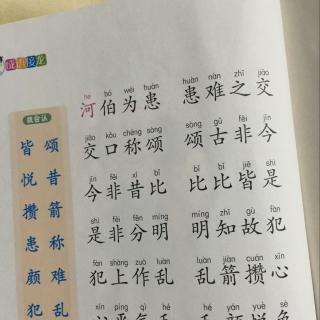 成语接龙
hé bó wéi huàn huàn nàn zhī jiāo
河伯为患 患难之交
jiāo kǒu chēng sòng sòng gǔ fēi jīn
交口称颂 颂古非今
jīn fēi xī bǐ bǐ bǐ jiē shì
今非昔比 比比皆是
shì fēi fēn míng míng zhī gù fàn
是非分明 明知故犯
fàn shàng zuò luàn luàn jiàn cuán xīn
犯上作乱 乱箭攒心
xīn píng qì hé
我会认
皆 颂
悦 昔
攒 箭
患 称
颜 难
犯 乱